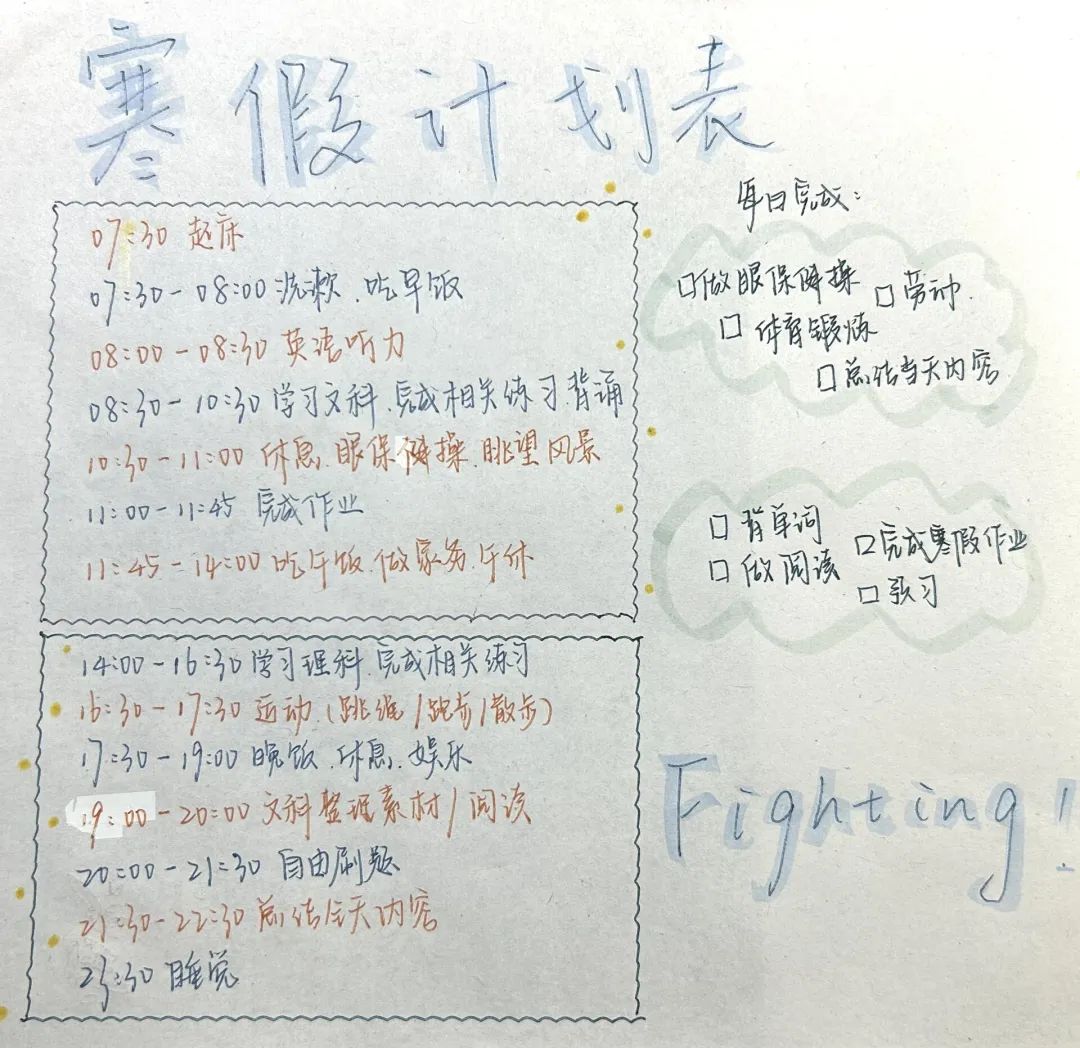 寒假计划表
07:30 起床
07:30-08:00 洗漱、吃早饭
08:00-08:30 英语听力
08:30-10:30 学习文科、完成相关练习、背诵
10:30-11:00 休息、眼保健操、眺望风景
11:00-11:45 完成作业
11:45-14:00 吃午饭、做家务、午休
14:00-16:30 学习理科、完成相关练习
16:30-17:30 运动(跳绳/跑步/散步)
17:30-19:00 晚饭、休息、娱乐
19:00-20:00 文科整理素材/阅读
20:00-21:30 自由刷题
21:30-22:30 总结全天内容
23:30 睡觉
每日完成:
□做眼保健操 □劳动
□体育锻炼
□总结当天内容
□背单词
□完成寒假作业
□做阅读
□预习
Fighting!